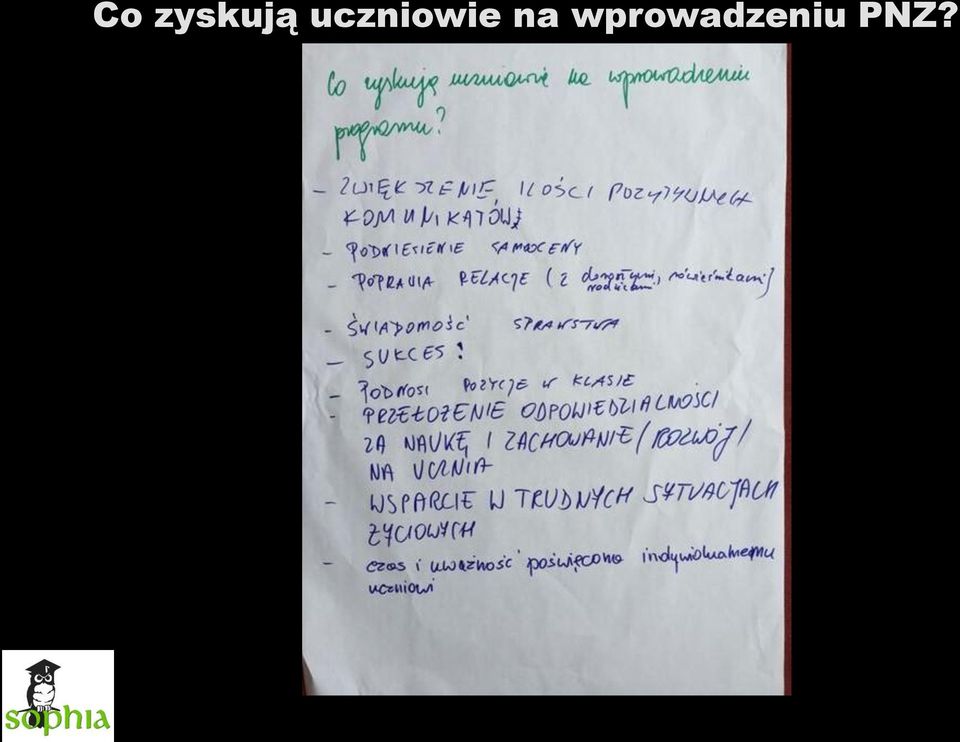 Co zyskują uczniowie na wprowadzeniu PNZ?
Co zyskują uczniowie na wprowadzeniu
programu?
- ZWIĘKSZENIE ILOŚCI POZYTYWNYCH
KOMUNIKATÓW
- PODNIESIENIE SAMOOCENY
- POPRAWIA RELACJE (z dorosłymi, rówieśnikami)
rodzicami
- ŚWIADOMOŚĆ SPRAWSTWA
- SUKCES!
- PODNOSI POZYCJE W KLASIE
- PRZEŁOŻENIE ODPOWIEDZIALNOŚCI
ZA NAUKĘ I ZACHOWANIE / ROZWÓJ /
NA UCZNIA
- WSPARCIE W TRUDNYCH SYTUACJACH
ŻYCIOWYCH
- czas i uważność poświęcona indywidualnemu
uczniowi
sophia